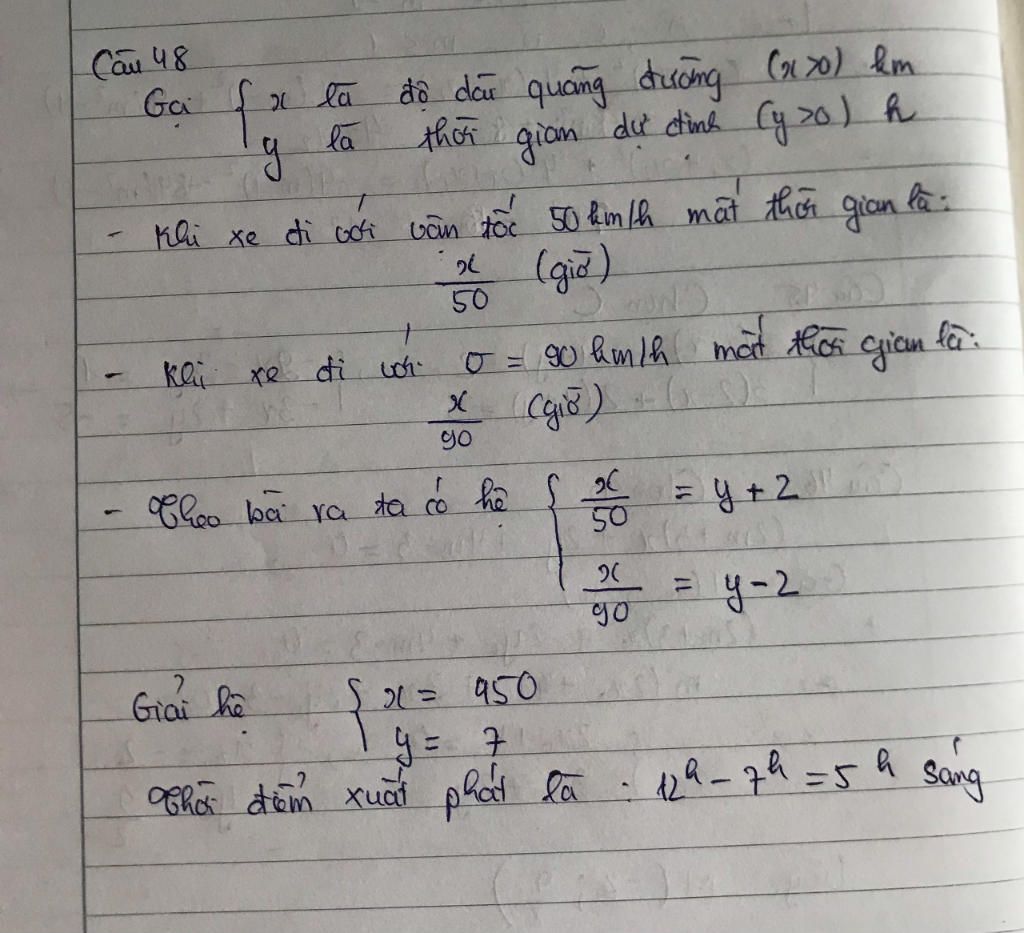 Câu 48
Gọi { x là độ dài quãng đường (x>0) km
y là thời gian dự định (y>0) h
- Khi xe đi với vận tốc 50 km/h mất thời gian là:
x/50 (giờ)
- Khi xe đi với v = 90 km/h mất thời gian là:
x/90 (giờ)
- Theo bài ra ta có hệ { x/50 = y + 2
x/90 = y - 2
Giải hệ { x = 450
y = 7
Thời điểm xuất phát là : 12h - 7h = 5h sáng